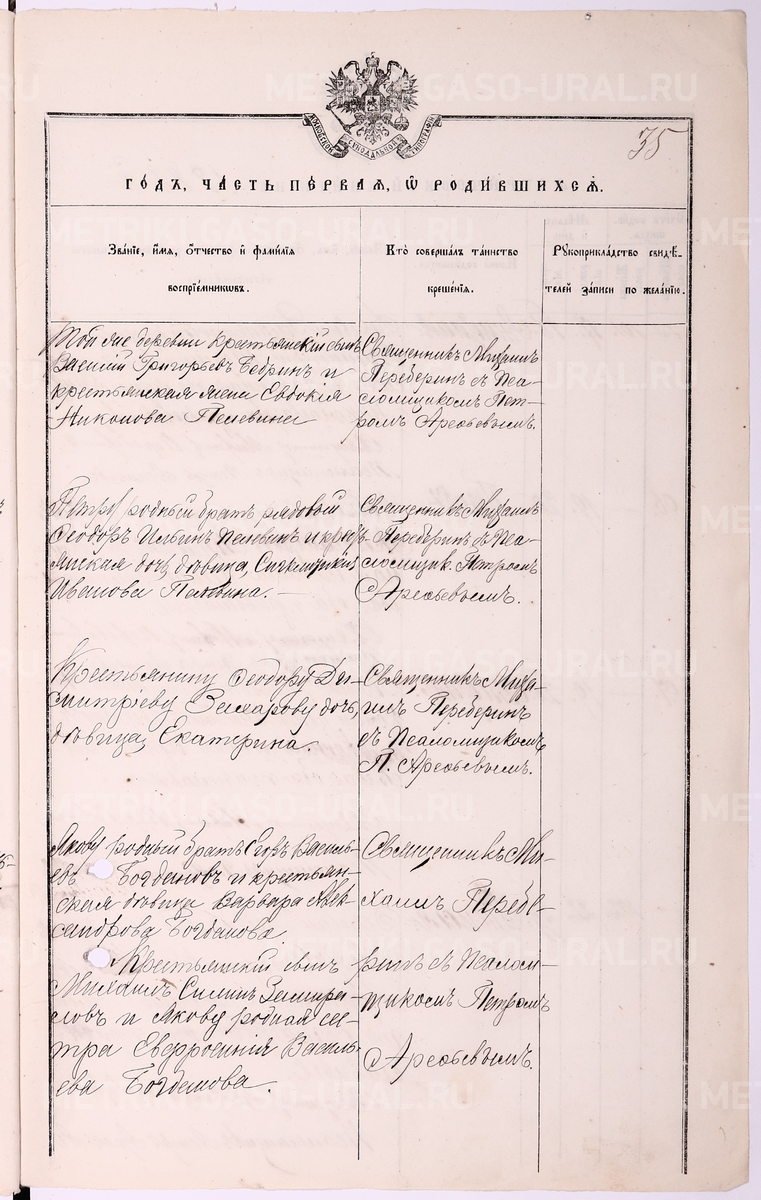 МОСКОВСКОЙ СѴНОДАЛЬНОЙ ТИПОГРАФІИ
35
ГОДЪ, ЧАСТЬ ПЕРВАЯ, Ѿ РОДИВШИХСЯ.
Званіе, имя, отчество и фамилія
воспріемниковъ.
Кто совершалъ таинство
крещенія.
Рукоприкладство свидѣ-
телей записи по желанію.
Той же деревни крестьянскій сынъ
Василій Григорьевъ Бебринъ и
крестьянская жена Евдокія
Никонова Пелевина
Священникъ Михаилъ
Переберинъ съ Пса-
ломщикомъ Пет-
ромъ Арефьевымъ.
Петру родный братъ рядовой
Ѳеодоръ Ильинъ Пелевинъ и крес
янская дочь дѣвица,
Иванова Пелевина.
Священникъ Михаилъ
Переберинъ съ Пса-
ломщик. Петромъ
Арефьевымъ.
Крестьянину Ѳеодору Ди-
митріеву дочь,
дѣвица, Екатерина.
Священникъ Миха-
илъ Переберинъ
съ Псаломщикомъ
П. Арефьевымъ.
Якову родный братъ Егоръ Василь-
евъ Богдановъ и крестьян-
ская дѣвица Варвара Алек-
сандрова Богданова.
Крестьянскій сынъ
Михаилъ Силинъ
и Якову родная сес-
тра Евфросинія Василь-
ева Богданова.
Священникъ Ми-
хаилъ Перебе-
ринъ съ Псалом-
щикомъ Петромъ
Арефьевымъ.
METRIKI.GASO-URAL.RU